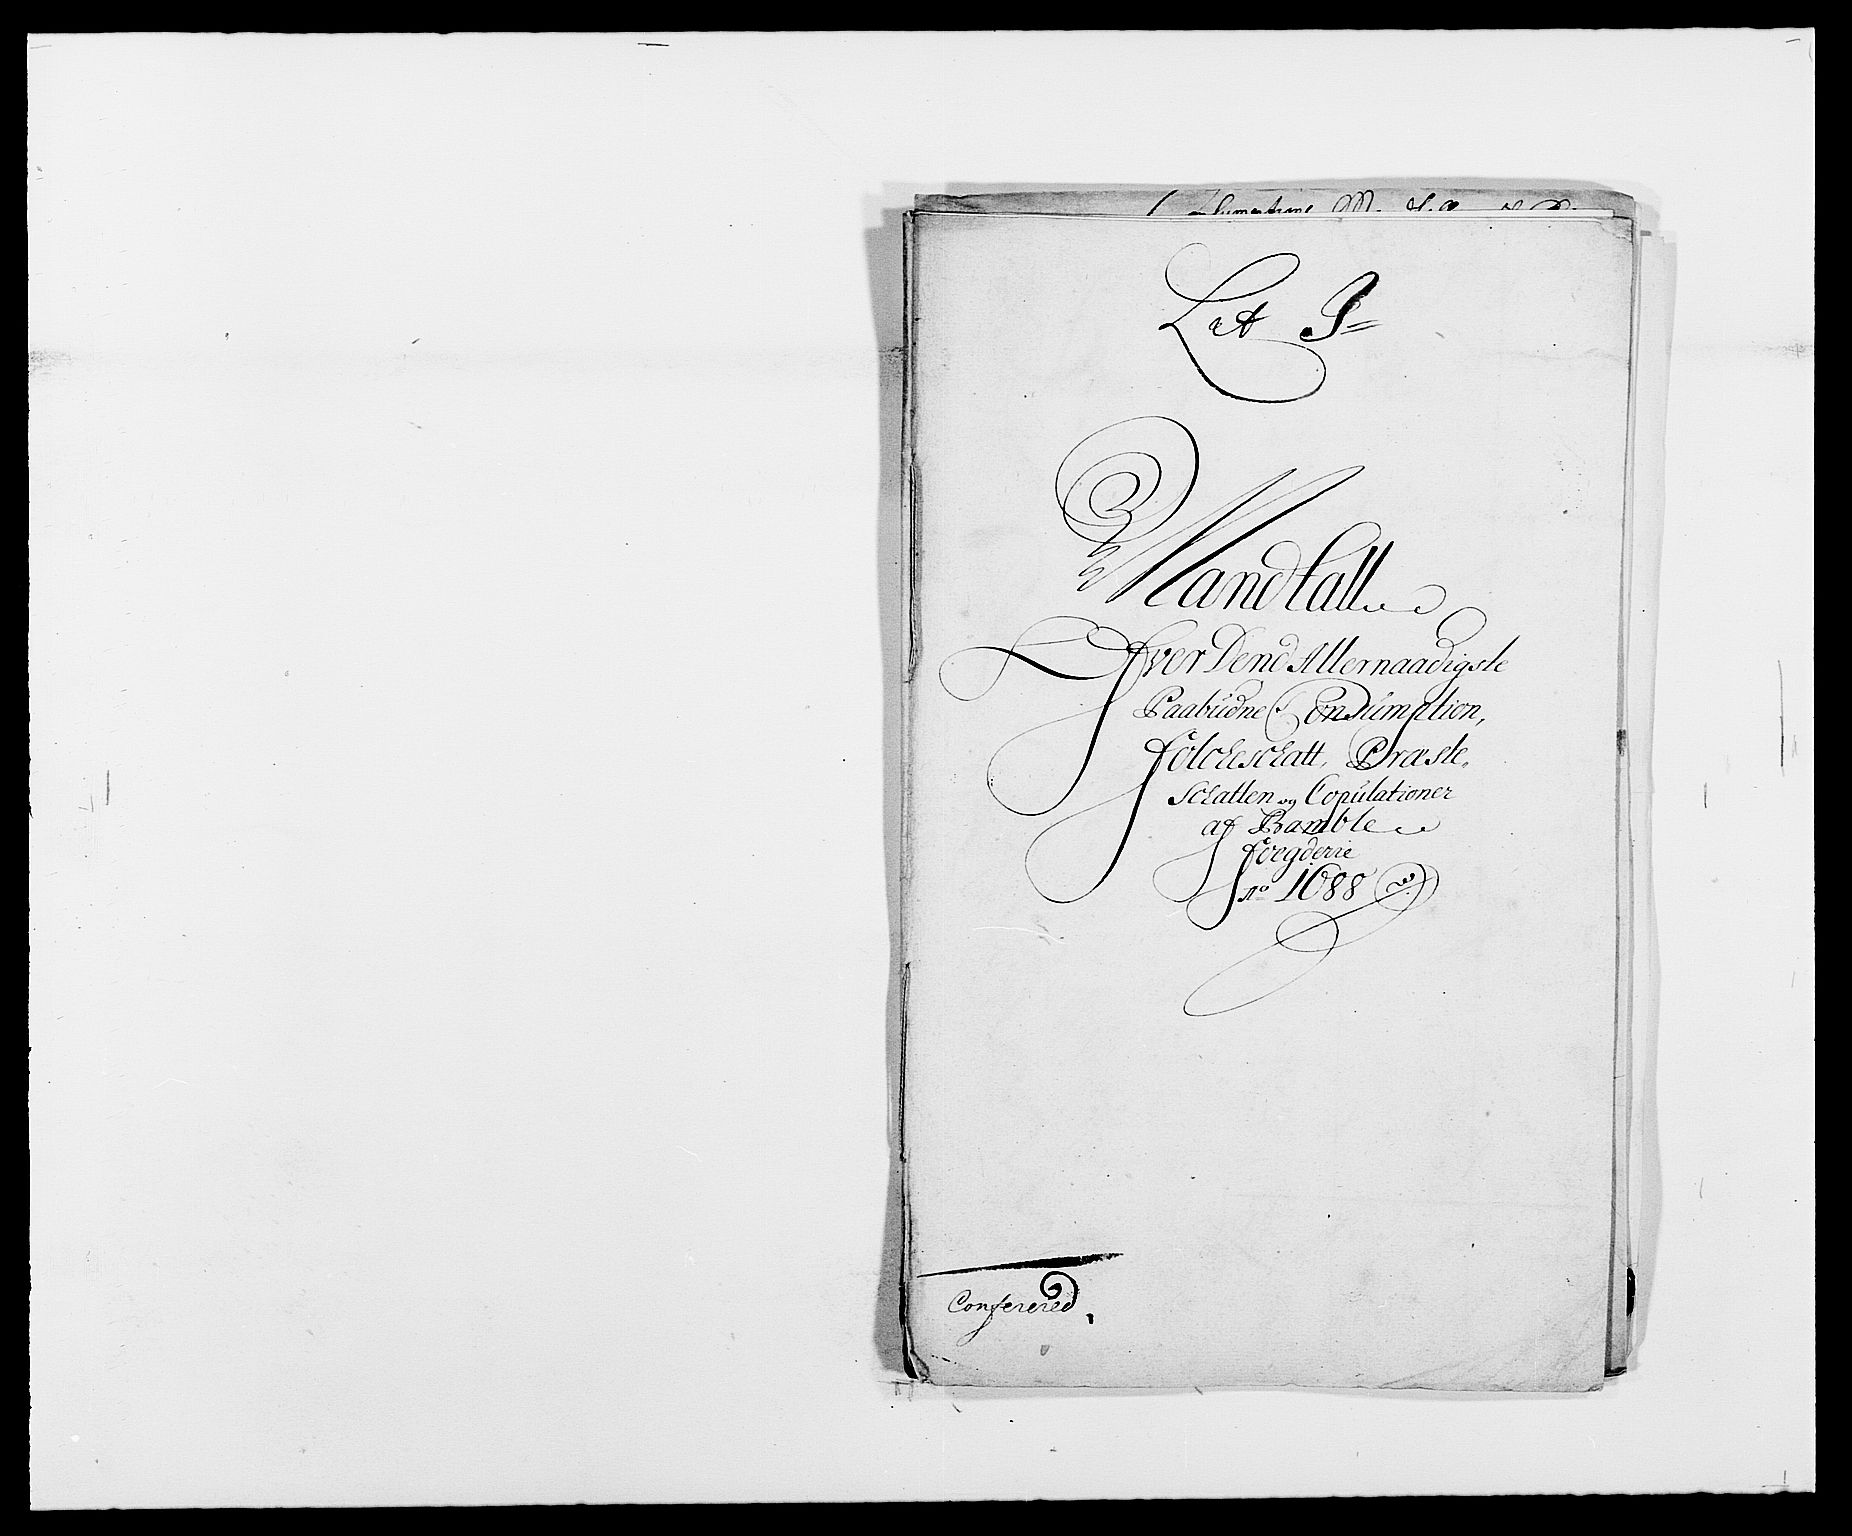 Lit J=
Mandtall
Ofver Dend Allernaadigste
Paabudne Consumption,
folcheschatt, Præste,
schatten og Copulationer
af Bamble
foegderie
Ao 1688
Conferered,